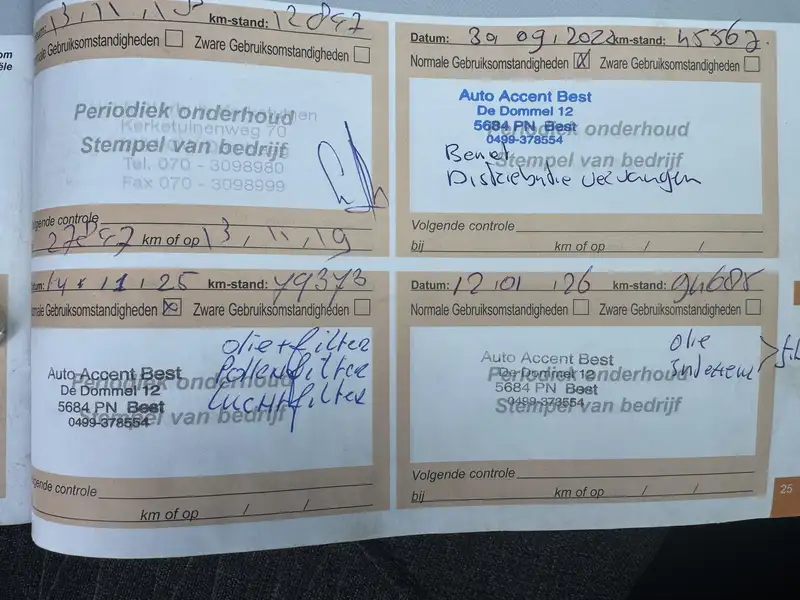 km-stand: 12847
Normale Gebruiksomstandigheden Zware Gebruiksomstandigheden
Periodiek onderhoud
Kerketuinenweg 70
Stempel van bedrijf
Tel. 070 - 3098980
Fax 070 - 3098999
lgende controle
27847 km of op 13, 11, 19
Datum: 30 09, 2022 km-stand: 45567.
Normale Gebruiksomstandigheden Zware Gebruiksomstandigheden
Auto Accent Best
De Dommel 12
5684 PN Best
0499-378554
Periodiek onderhoud
Stempel van bedrijf
Distributie vervangen
Volgende controle
bij km of op / /
14 11, 25 km-stand: 79373
male Gebruiksomstandigheden Zware Gebruiksomstandigheden
olie+filter
Pollenfilter
luchtfilter
Auto Accent Best
De Dommel 12
5684 PN Best
0499-378554
Periodiek onderhoud
Stempel van bedrijf
gende controle
km of op / /
Datum: 12 01 26 km-stand: 94685
Normale Gebruiksomstandigheden Zware Gebruiksomstandigheden
olie
Auto Accent Best
De Dommel 12
5684 PN Best
0499-378554
Periodiek onderhoud
Stempel van bedrijf
Volgende controle
bij km of op / /
25